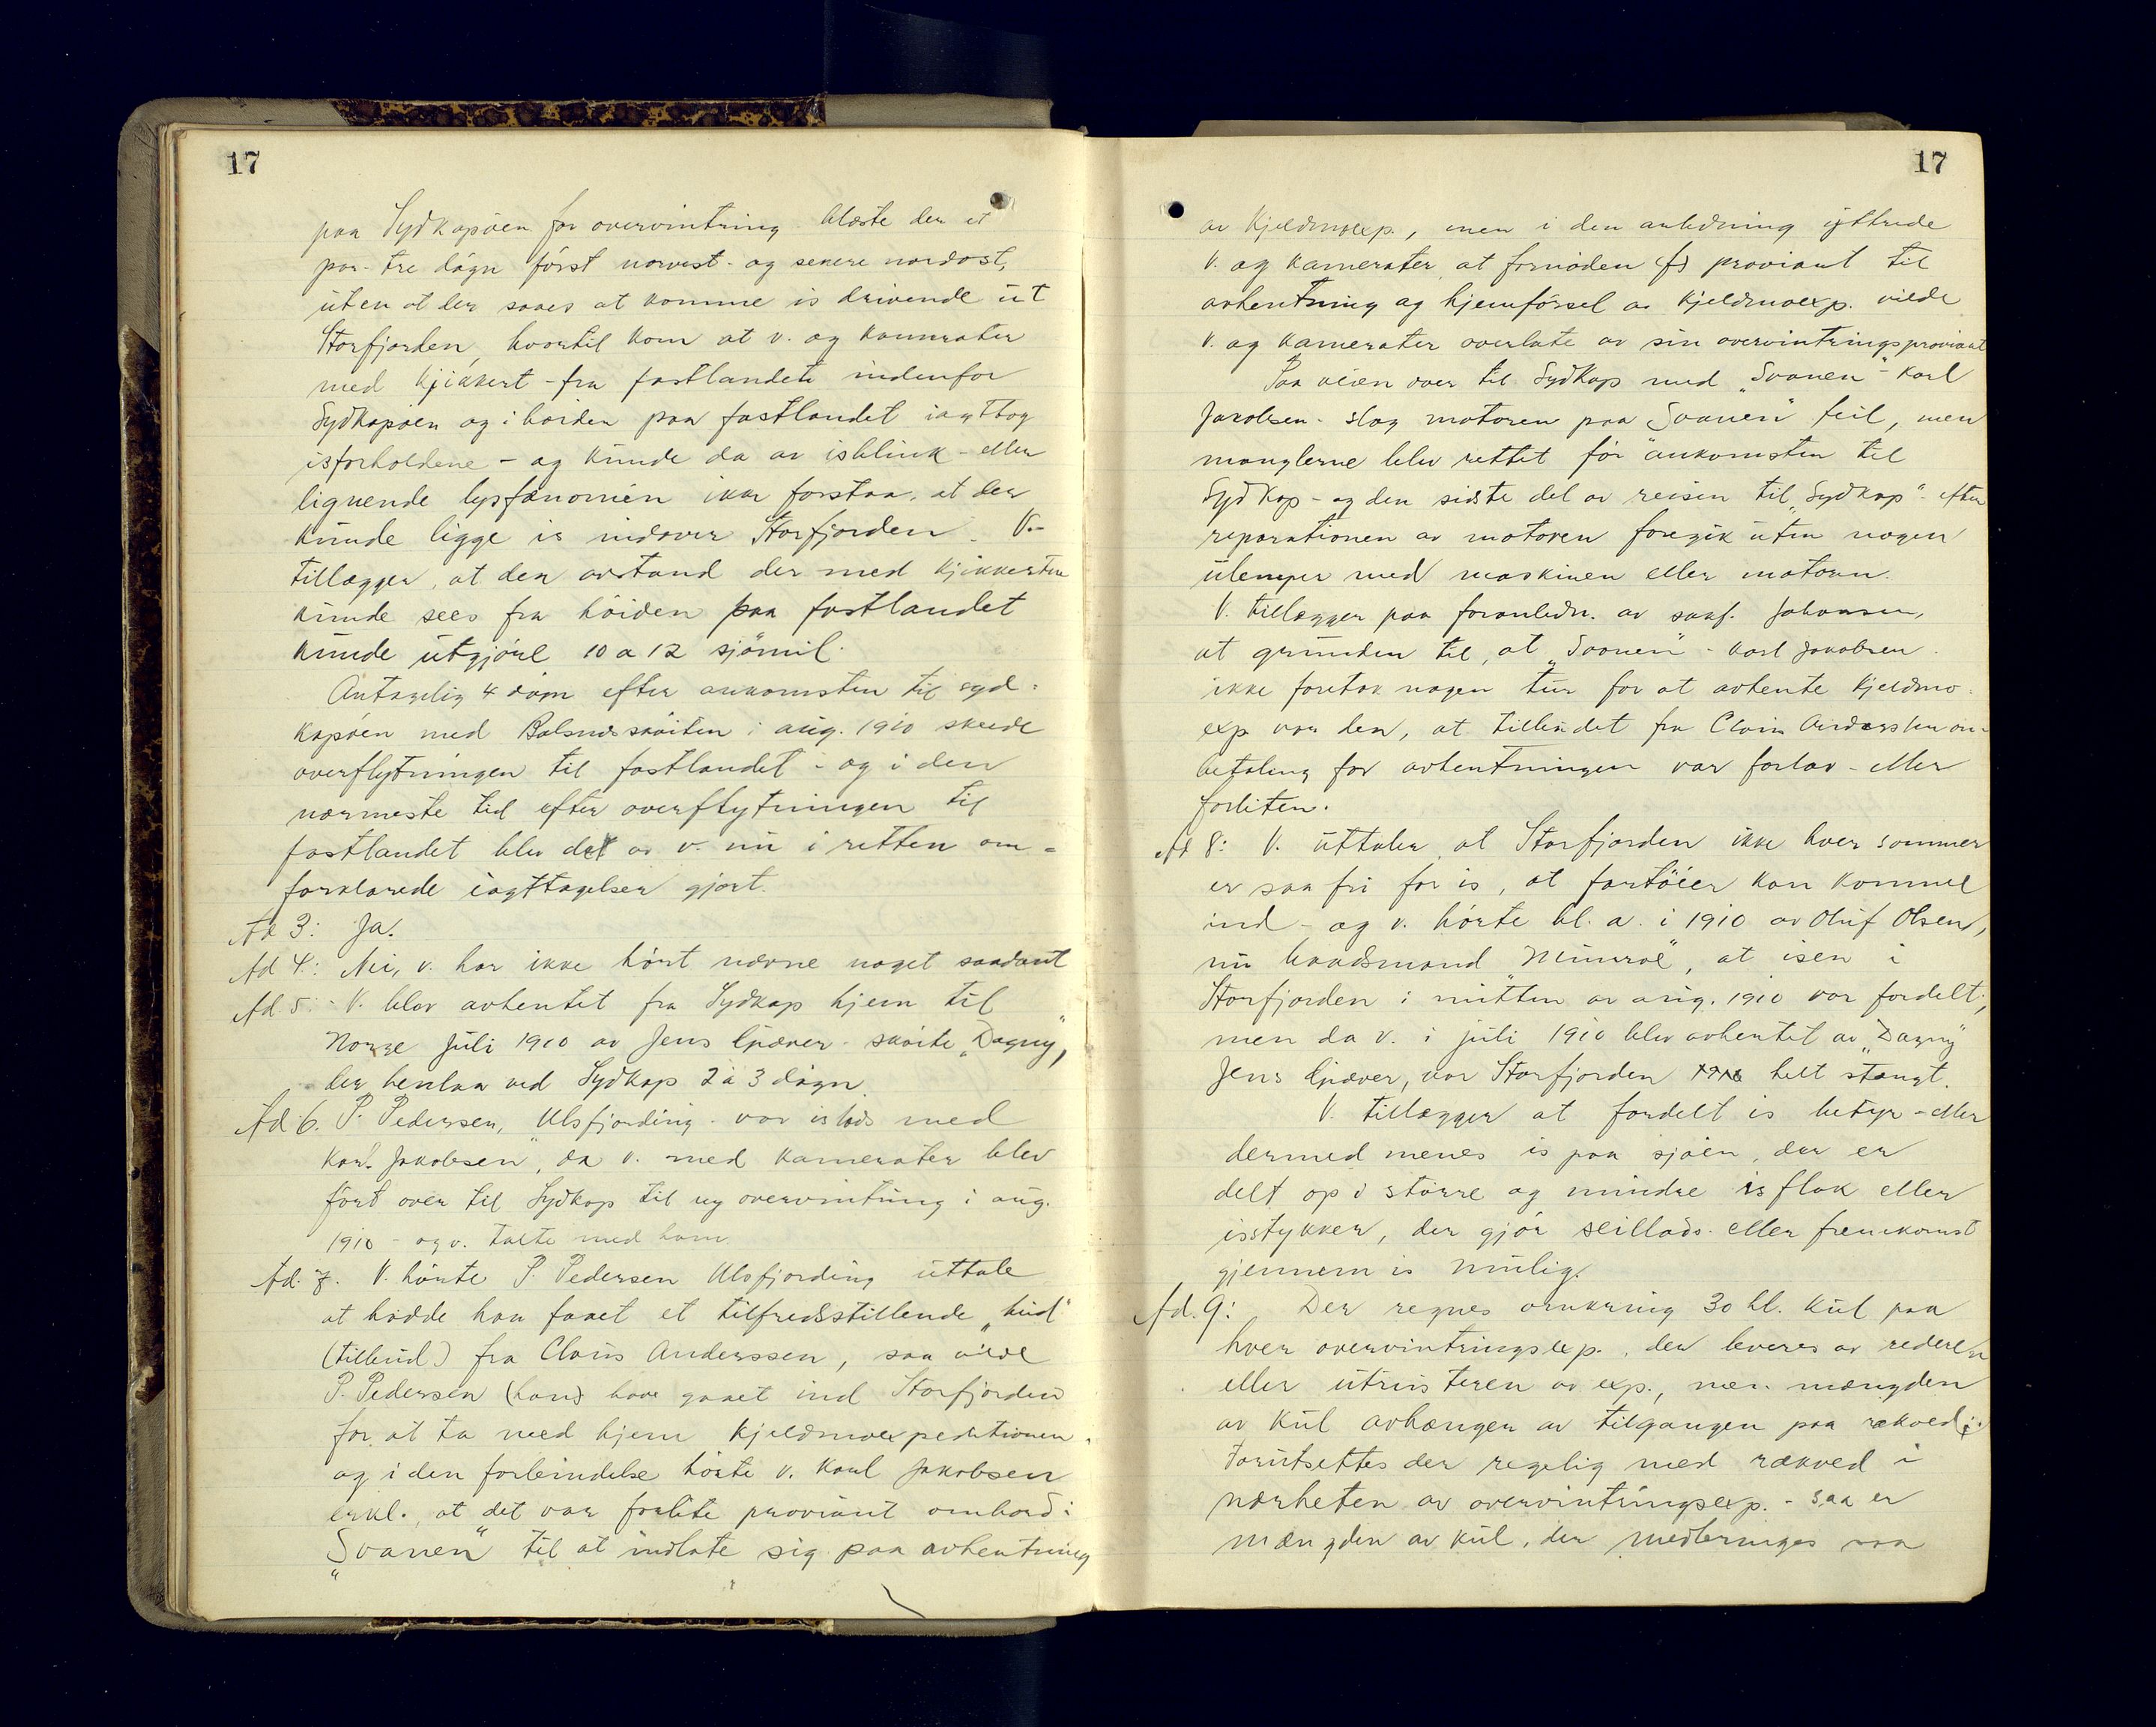 17
paa Sydkapöen for overvintring blæste der et
par-tre dögn först norvest- og senere nordost,
uten at der saaes at komme is drivende ut
Storfjorden, hvortil kom at v. og kammerater
med kjikkert - fra fastlandet indenfor
Sydkapöen og i höiden paa fastlandet iagttog
isforholdene - og kunde da av isblink - eller
lignende lysfænomén ikke forstaa, at der
kunde ligge is indover Storfjorden. V.
tillægger, at den avstand der med kjikkerten
kunde sees fra höiden paa fastlandet
kunde utgjöre 10 a 12 sjömil.
Antagelig 4 dögn efter ankomsten til syd-
kapöen med Balsnessköiten i aug. 1910 skeede
overflytningen til fastlandet - og i den
nærmeste tid efter overflytningen til
fastlandet blev det av v. nu i retten om-
forklarede iagttagelser gjort.
Ad 3: Ja.
Ad 4: Nei, v. har ikke hört nævne noget saadant
Ad 5: - V. blev avhentet fra Sydkap hjem til
Norge juli 1910 av Jens Gjæver - sköite „Dagny",
der henlaa ved Sydkap 2 à 3 dögn
Ad 6. P. Pedersen, Ulsfjording - var islods med
Karl Jakobsen, da v. med kamerater blev
fört over til Sydkap til ny overvintring i aug.
1910 - og v. talte med ham.
Ad. 7. V. hörte P. Pedersen Ulsfjording uttale
at hadde han faaet et tilfredsstillende „bud"
(tilbud) fra Claus Anderssen, saa vilde
P. Pedersen (han) have gaaet ind Storfjorden
for at ta med hjem Kjeldmoexpeditionen.
og i den forbindelse hörte v. Karl Jakobsen
erkl., at det var forlite proviant ombord i
„Svanen" til at indlate sig paa avhentning
17
av Kjeldmoexp., men i den anledning yttrede
V. og kamerater at fornöden (f) proviant til
avhentning og hjemförsel av Kjeldmoexp. vilde
V. og kamerater overlate av sin overvintringsproviant
Paa veien over til Sydkap med „Svanen" - Karl
Jakobsen - slog motoren paa „Svanen" feil, men
manglerne blev rettet för ankomsten til
Sydkap - og den sidste del av reisen til „Sydkap" - efter
reparationen av motoren foregik uten nogen
ulemper med maskinen eller motoren.
V. tillægger paa foranledn. av sakf. Johansen,
at grunden til, at „Svanen" - Karl Jakobsen
ikke foretok nogen tur for at avhente Kjeldmo-
exp var den, at tilbudet fra Claus Anderssen om
betaling for avhentningen var forlav - eller
forliten.
Ad 8: V. uttaler, at Storfjorden ikke hver sommer
er saa fri for is, at fartöier kan komme
ind - og v. hörte bl. a. i 1910 av Oluf Olsen,
nu baadsmand „Munroe", at isen i
Storfjorden i mitten av aug. 1910 var fordelt,
men da v. i juli 1910 blev avhentet av „Dagny"
Jens Gjæver, var Storfjorden helt stængt.
V. tillægger at fordelt is betyr - eller
dermed menes is paa sjöen, der er
delt op i större og mindre isflak eller
isstykker, der gjör seillads eller fremkomst
gjennem is mulig.
Ad. 9: Der regnes omkring 30 hl. kul paa
hver overvintringsexp., der leveres av rederen
eller utrusteren av exp., men mængden
av kul avhænger av tilgangen paa rækved;
forutsettes der regelig med rækved i
nærheten av overvintringsexp. - saa er
mængden av kul, der medbringes saa